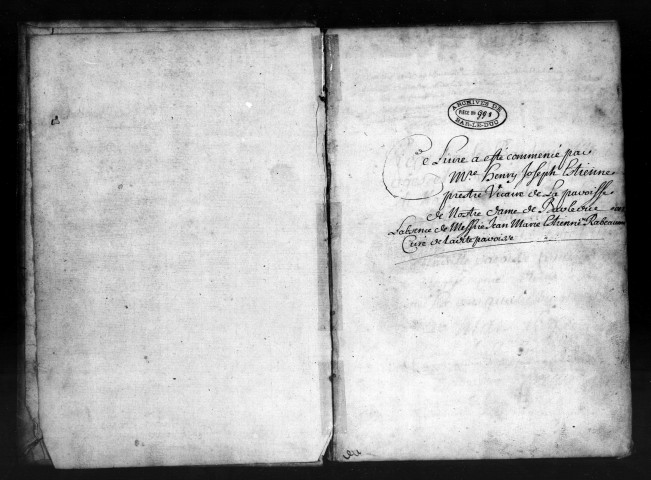 ARCHIVES DE
PIECE No 994
BAR-LE-DUC
Ce Livre a esté commencé par
Mre Henry Joseph Estienne
prestre Vicaire de La paroisse
de Nostre Dame de Barleduc
Labsence de Messire Jean Marie Estienne Rabeau
Curé de Ladite paroisse